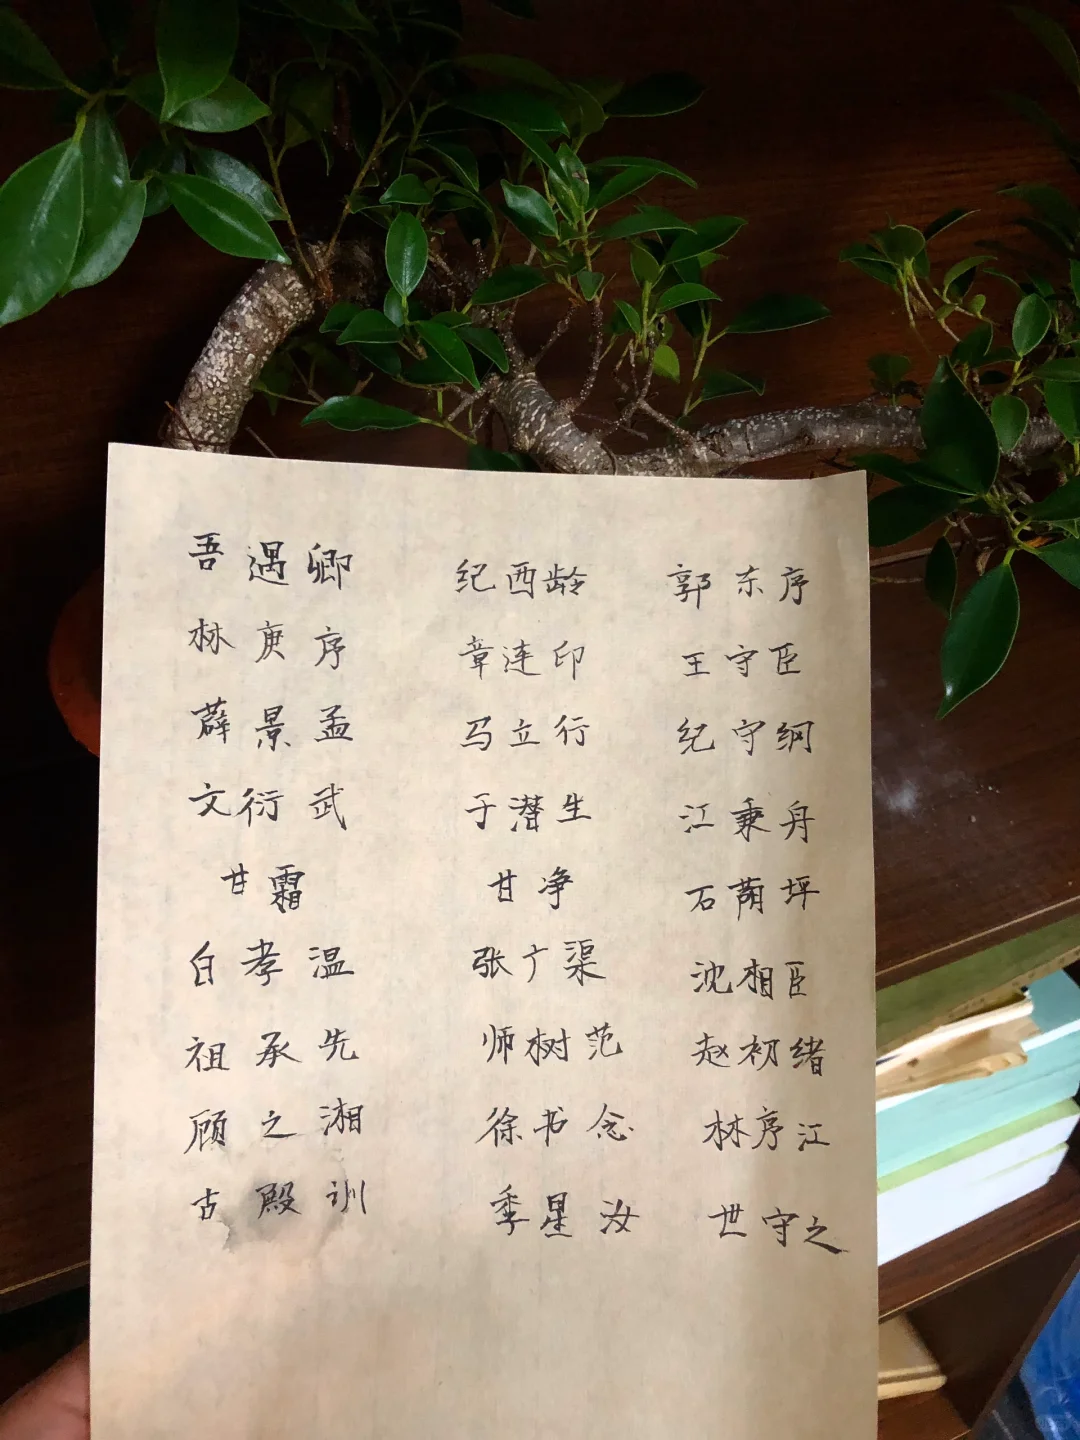 吾遇卿 纪西龄 郭东序
林庚序 章涟印 王守臣
薛景孟 马立行 纪守纲
文衍武 于潜生 江秉舟
甘霜 甘净 石蔺坪
白孝温 张广渠 沈相臣
祖承先 师树范 赵初绪
顾之湘 徐书念 林序江
古殿训 季星汝 世守之